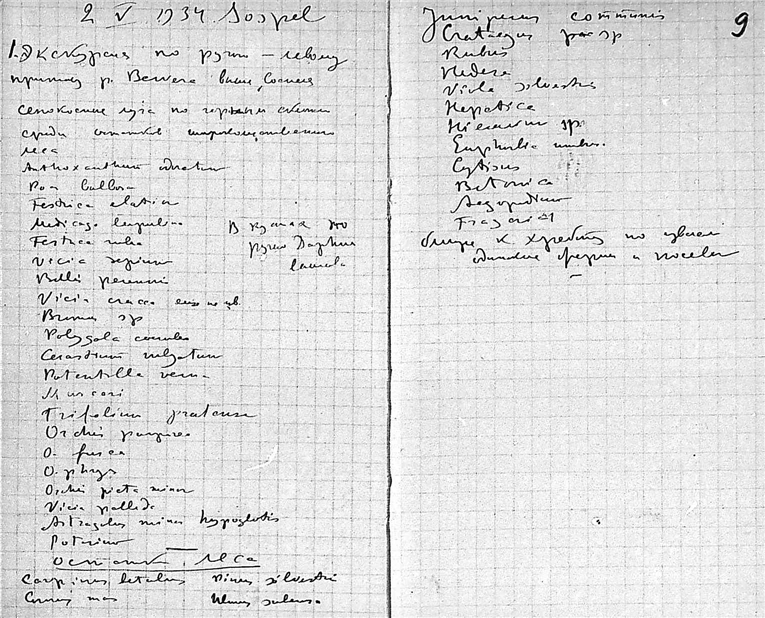 2 V 1934. Sospel
1. Экскурсия по ручью – левому
притоку р. Bevera выше Соспеля
сенокосные луга по горным склонам
среди остатков широколиственного
леса
Anthoxanthum odoratum
Poa bulbosa
Festuca elatior
Medicago lupulina
Festuca rubra
Vicia sepium
Bellis perennis
Vicia cracca еще не цв.
Bromus sp
Polygala comosa
Cerastium vulgatum
Potentilla verna
Muscari
Trifolium pratense
Orchis purpurea
O. fusca
Ophrys
Orchis picta minor
Vicia pallida
Astragalus minor hypoglotis
Poterium
в кустах по
ручью Daphne
laureola
остатки леса
Carpinus betulus Pinus silvestris
Cornus mas Ulmus suberosa
9
Juniperus communis
Crataegus sp
Rubus
Hedera
Viola silvestris
Hepatica
Hieracium sp.
Euphorbia
Cytisus
Betonica
Aegopodium
Fragaria
ближе к хребту по
одинокие фермы и посевы